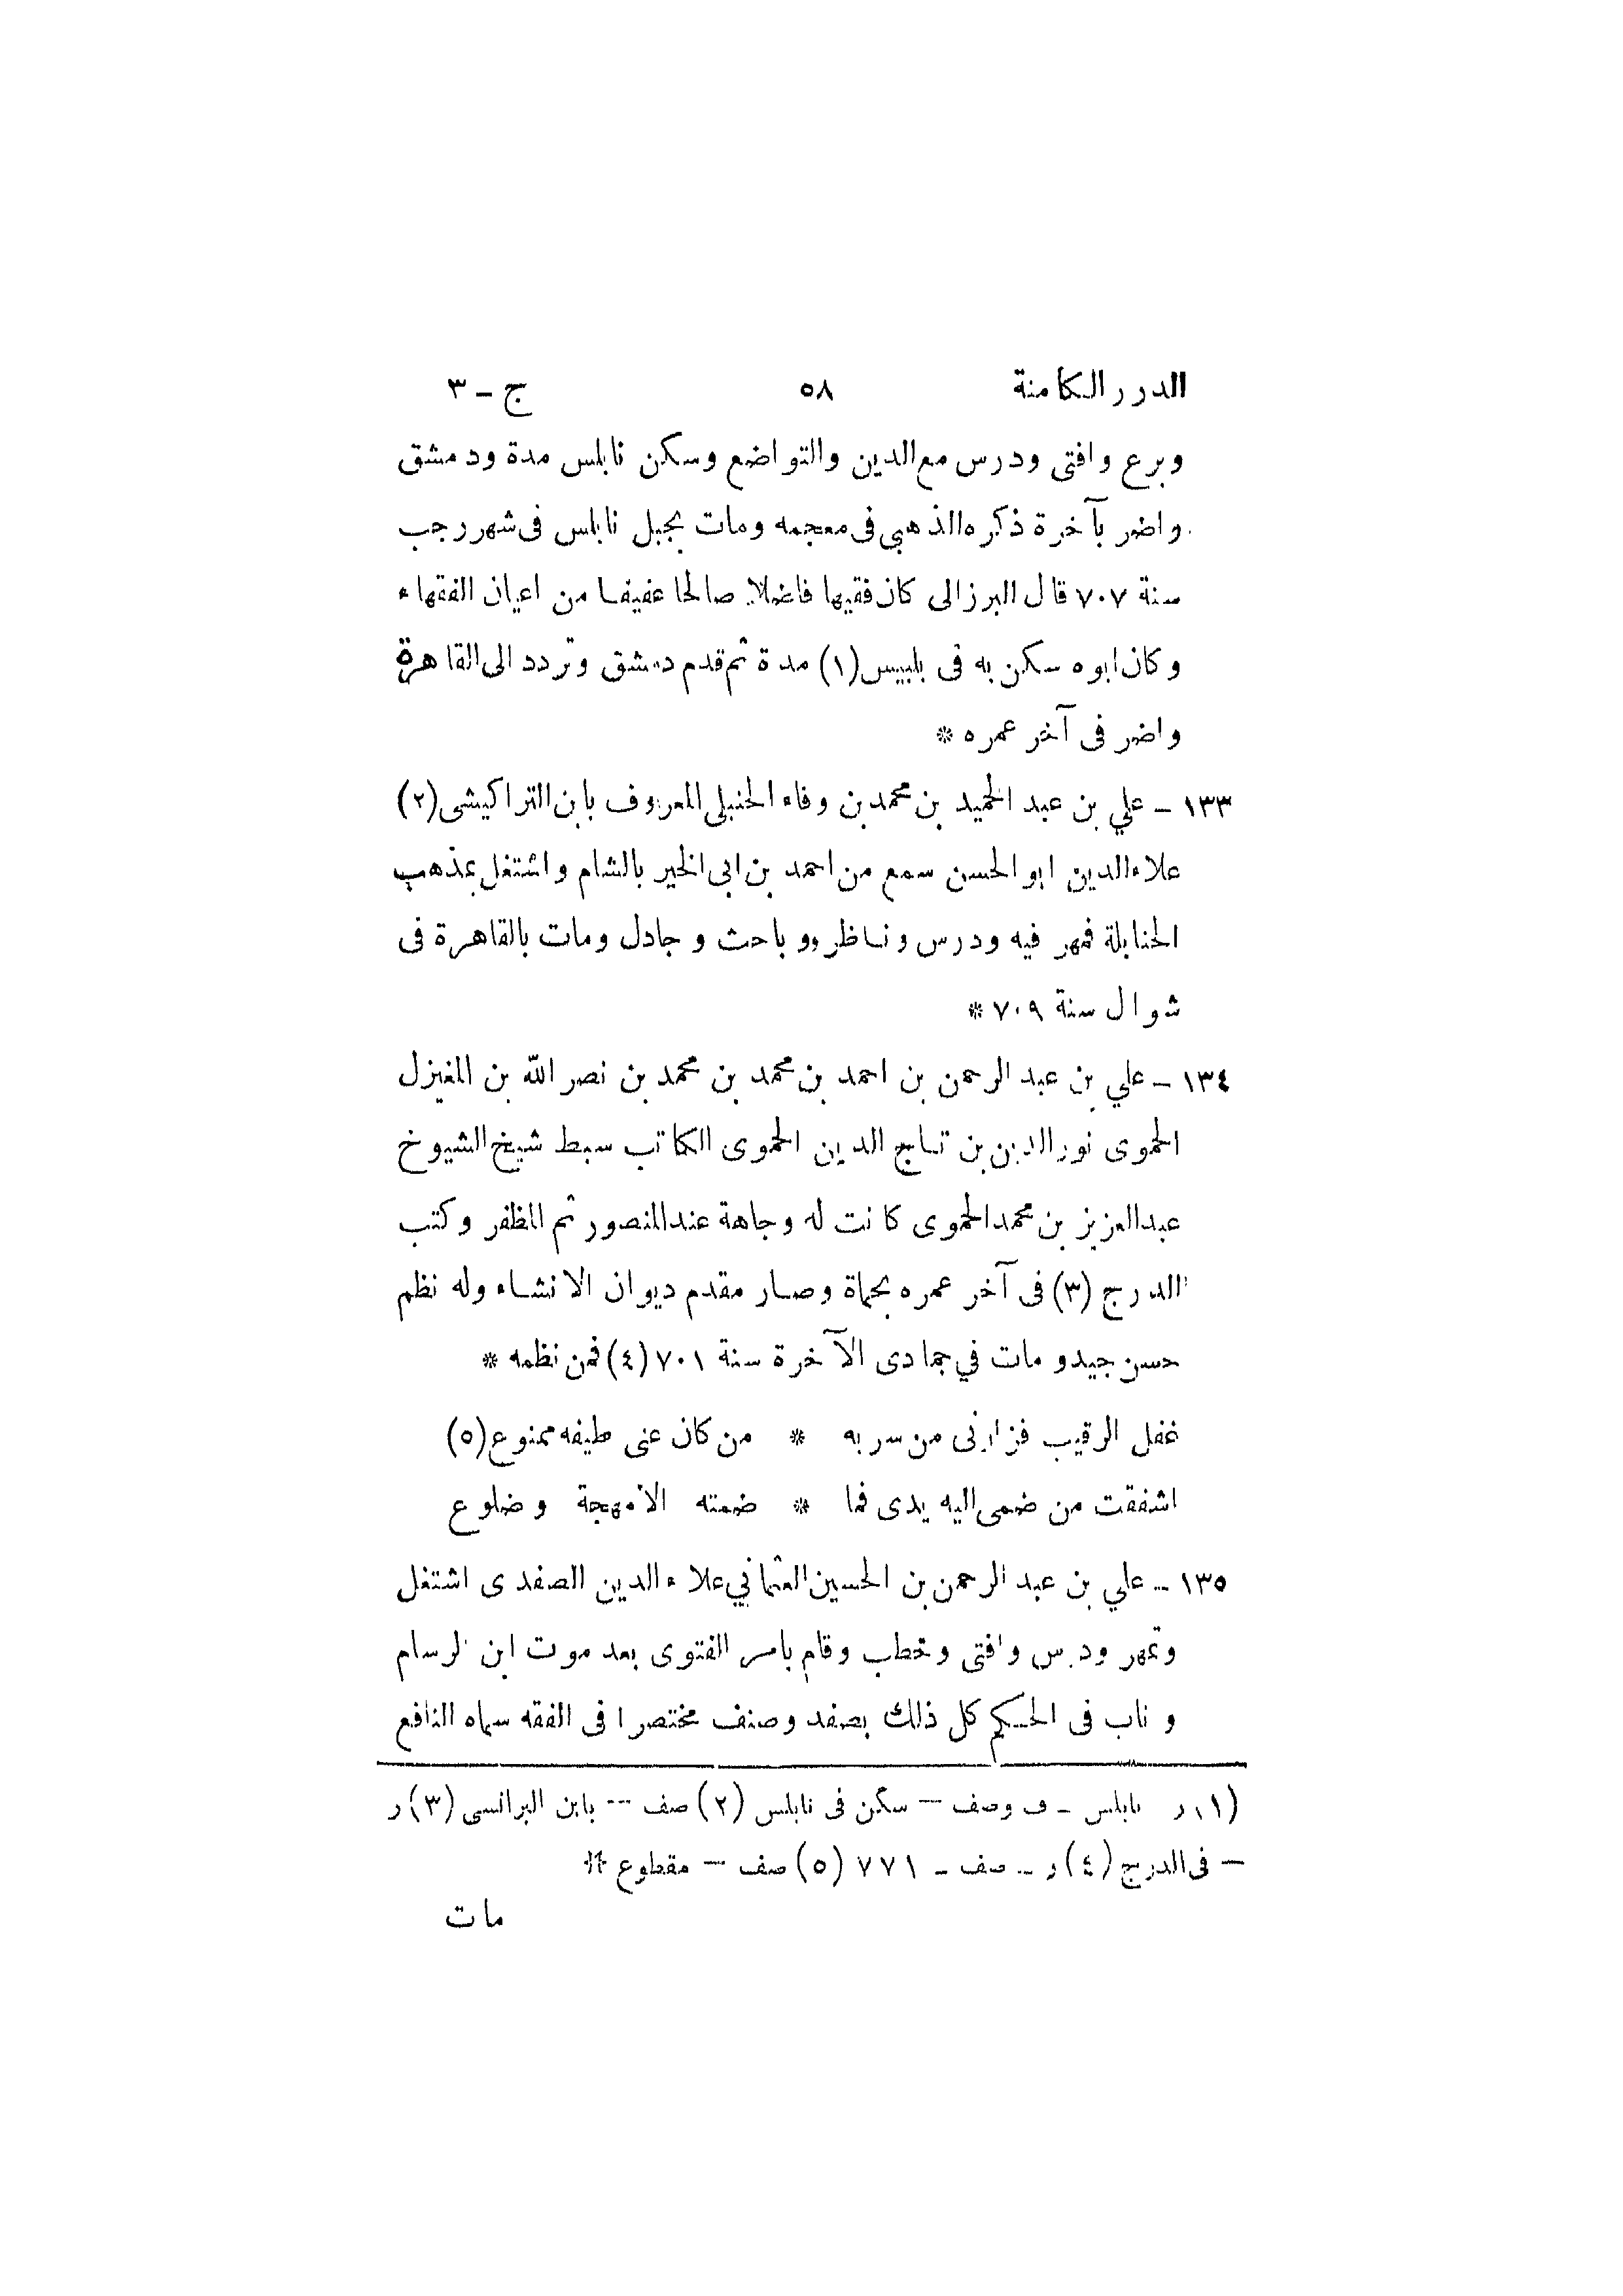 الدرر الكامنة ٥٨ ج - ٣
وبرع وافتى ودرس مع الدين والتواضع وسكن نابلس مدة ودمشق
واضر بآخرة ذكره الذهبي فى معجمه ومات بجبل نابلس فى شهر رجب
سنة ٧٠٧ قال البرزالى كان فقيها فاضلا صالحا عفيفا من اعيان الفقهاء
وكان ابوه سكن به فى بلبيس (١) مدة ثم قدم دمشق وتردد الى القاهرة
واضر فى آخر عمره *
١٣٣ - علي بن عبد الحميد بن محمد بن وفاء الحنبلى المعروف بابن التراكيشى (٢)
علاء الدين ابو الحسن سمع من احمد بن ابى الخير بالشام واشتغل بمذهب
الحنابلة فمهر فيه ودرس وناظر وو باحث وجادل ومات بالقاهرة فى
شوال سنة ٧٠٩ *
١٣٤ - علي بن عبد الرحمن بن احمد بن محمد بن محمد بن نصر الله بن المغيزل
الحموى نور الدين بن تاج الدين الحموى الكاتب سبط شيخ الشيوخ
عبد العزيز بن محمد الحموى كانت له وجاهة عند المنصور ثم المظفر وكتب
الدرج (٣) فى آخر عمره بحماة وصار مقدم ديوان الانشاء وله نظم
حسن جيد ومات في جمادى الآخرة سنة ٧٠١ (٤) فمن نظمه *
غفل الرقيب فزارنى من سربه * من كان عنى طيفه ممنوع (٥)
اشفقت من ضمى اليه يدى فما * ضمته الا مهجة وضلوع
١٣٥ - علي بن عبد الرحمن بن الحسين العثماني علاء الدين الصفدى اشتغل
وتمهر ودرس وافتى وخطب وقام بامر الفتوى بعد موت ابن الرسام
وناب فى الحكم كل ذلك بصفد وصنف مختصرا فى الفقه سماه النافع
(١) ر نابلس - ف وصف - سكن فى نابلس (٢) صف -- بابن البرانسى (٣) ر
- فى الدرج (٤) ر - صف - ٧٧١ (٥) صف - مقطوع *
مات